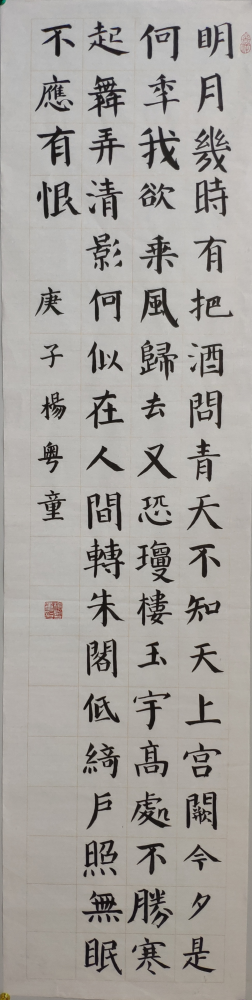 明月幾時有把酒問青天不知天上宮闕今夕是
何年我欲乘風歸去又恐瓊樓玉宇高處不勝寒
起舞弄清影何似在人間轉朱閣低綺戶照無眠
不應有恨
庚子楊粵童